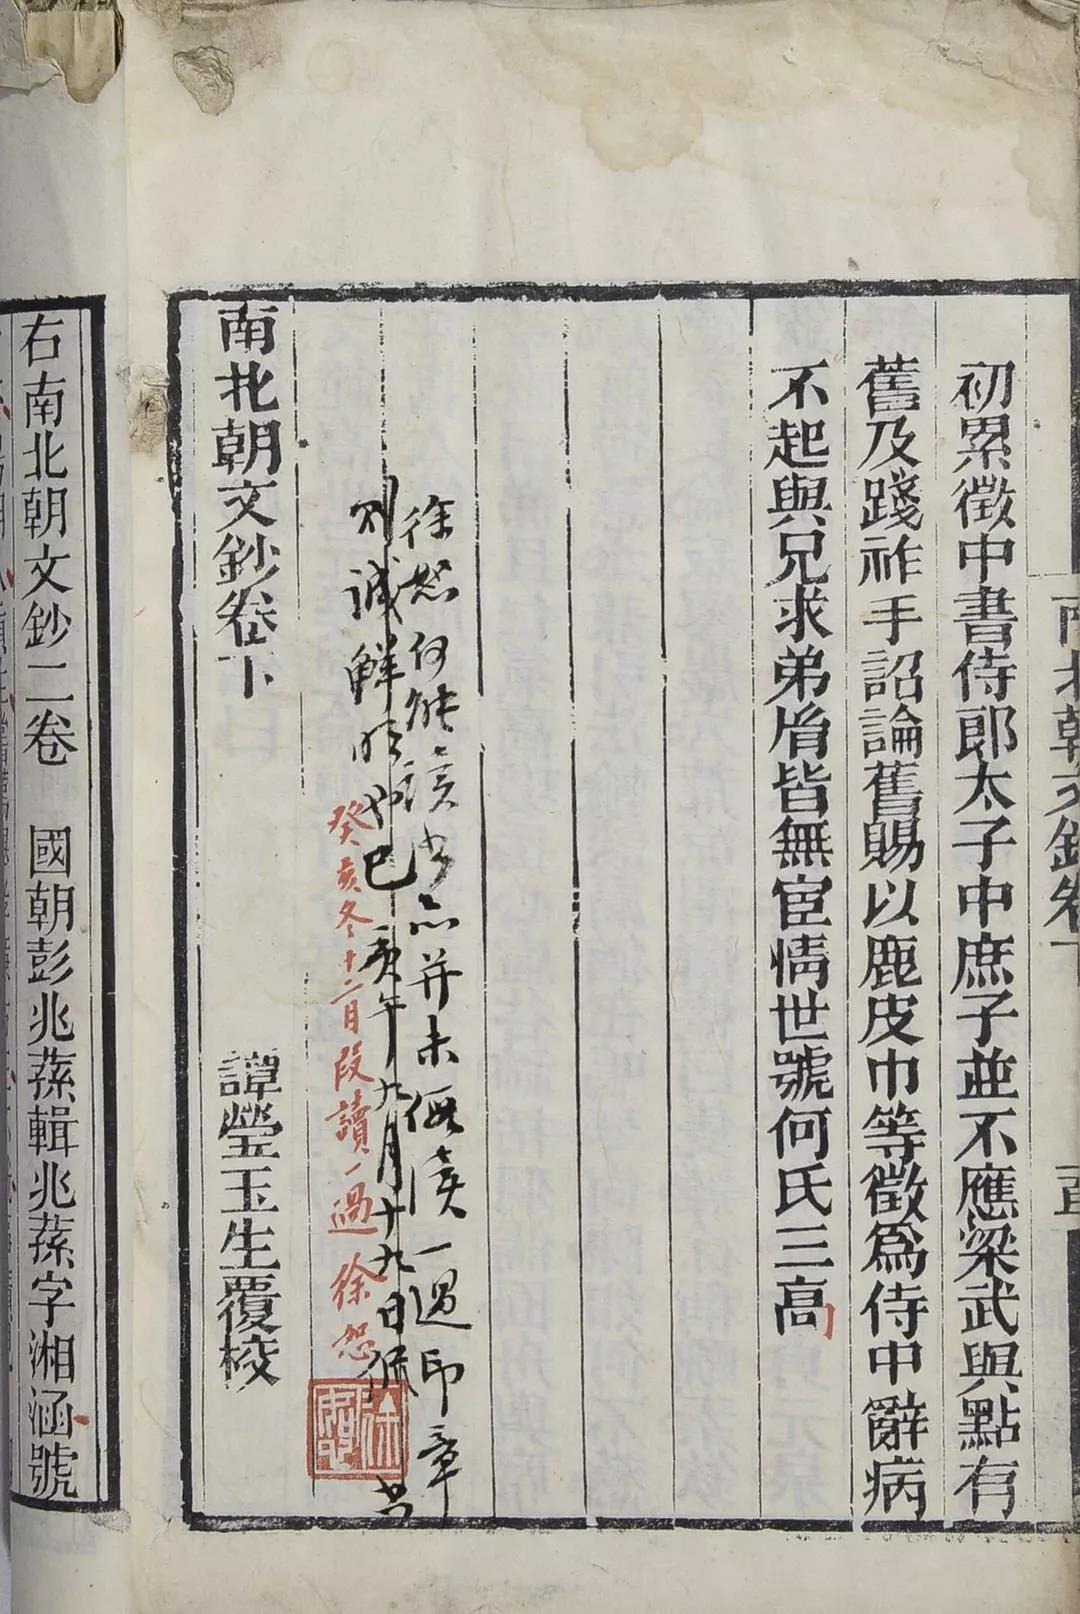 初累徵中書侍郎太子中庶子並不應梁武與點有
舊及踐祚手詔論舊賜以鹿皮巾等徵爲侍中辭病
不起與兄求弟胤皆無宦情世號何氏三高
徐恕何能讀書亦并未假讀一過印章
則誠鮮明也己亥年九月十九日
癸亥冬十二月段讀一過徐恕
南北朝文鈔卷下
譚瑩玉生覆校
右南北朝文鈔二卷 國朝彭兆蓀輯兆蓀字湘涵號